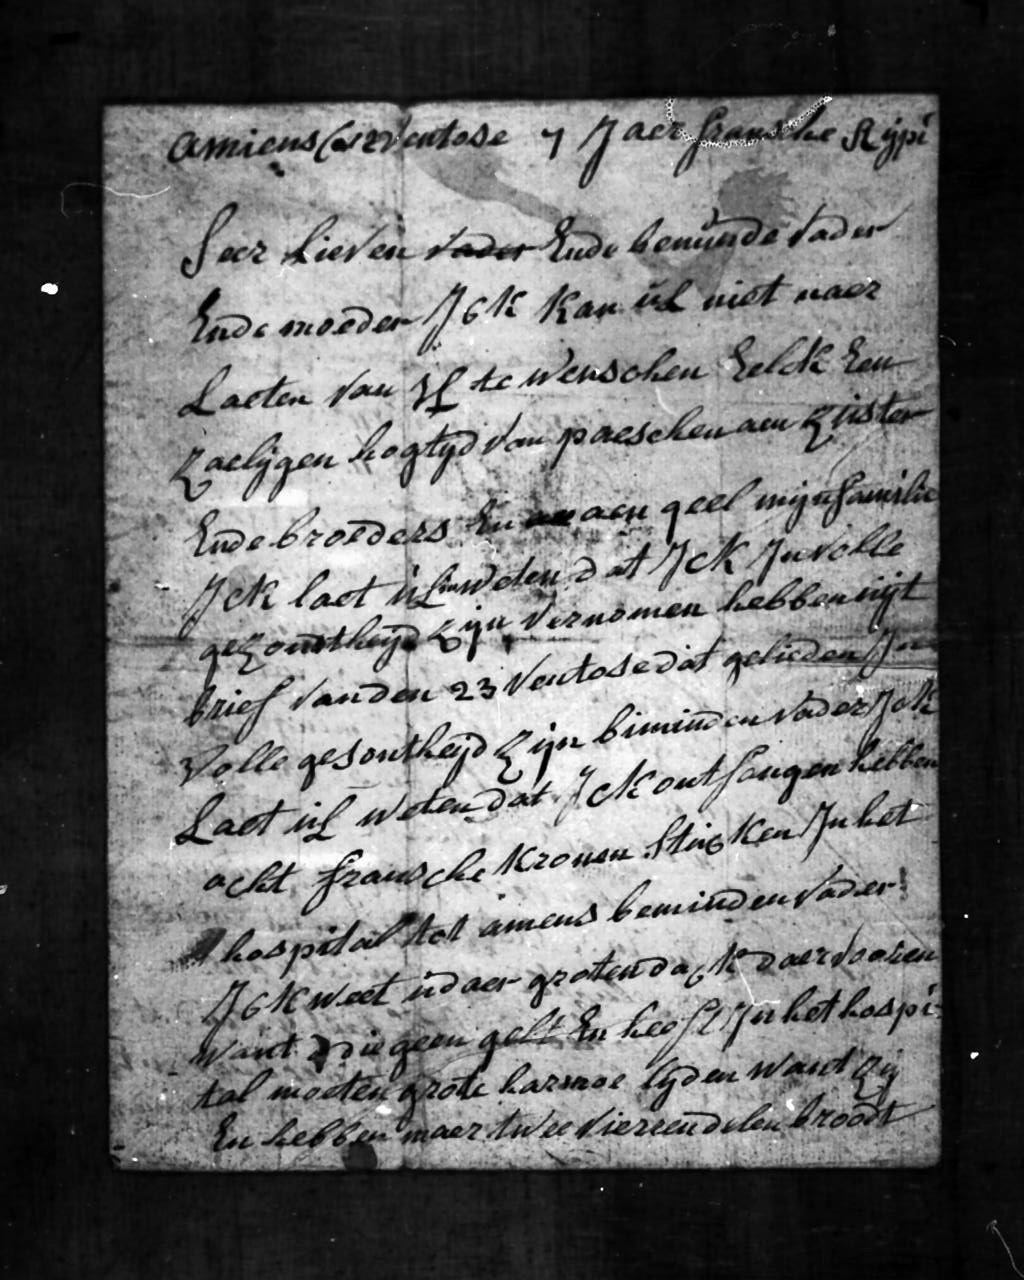 amiens ventose 7 Jaer fransche Rypi
Seer Lieven vader Ende beminde vader
Ende moeder Jck kan ul niet naer
Laeten van ul te wenschen Eelck Een
Zaelijgen hogtyd van paeschen aen Zuster
Ende broeders En aen geel mijn familie
Jck laet ul weten dat Jck Jn volle
gezontheyd Zijn vernomen hebben uijt
brief van den 23 ventose dat gelieden Jn
volle gesontheyd Zijn biminden vader Jck
Laet ul weten dat Jck ontfangen hebben
acht fransche kronen stucken Jn het
hospital tot amens beminden vader
Jck weet u daer groten danck daer vooren
want die geen gelt En heeft Jn het hospi
tal moeten grote harmoe lyden want Zij
En hebben maer twee vierendelen broodt